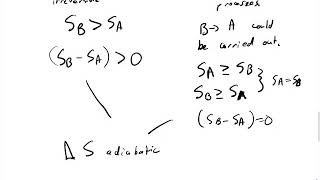 processes
S_B > S_A
B → A could
be carried out.
(S_B - S_A) > 0
S_A ≥ S_B
S_B ≥ S_A } S_A = S_B
(S_B - S_A) = 0
Δ S adiabatic